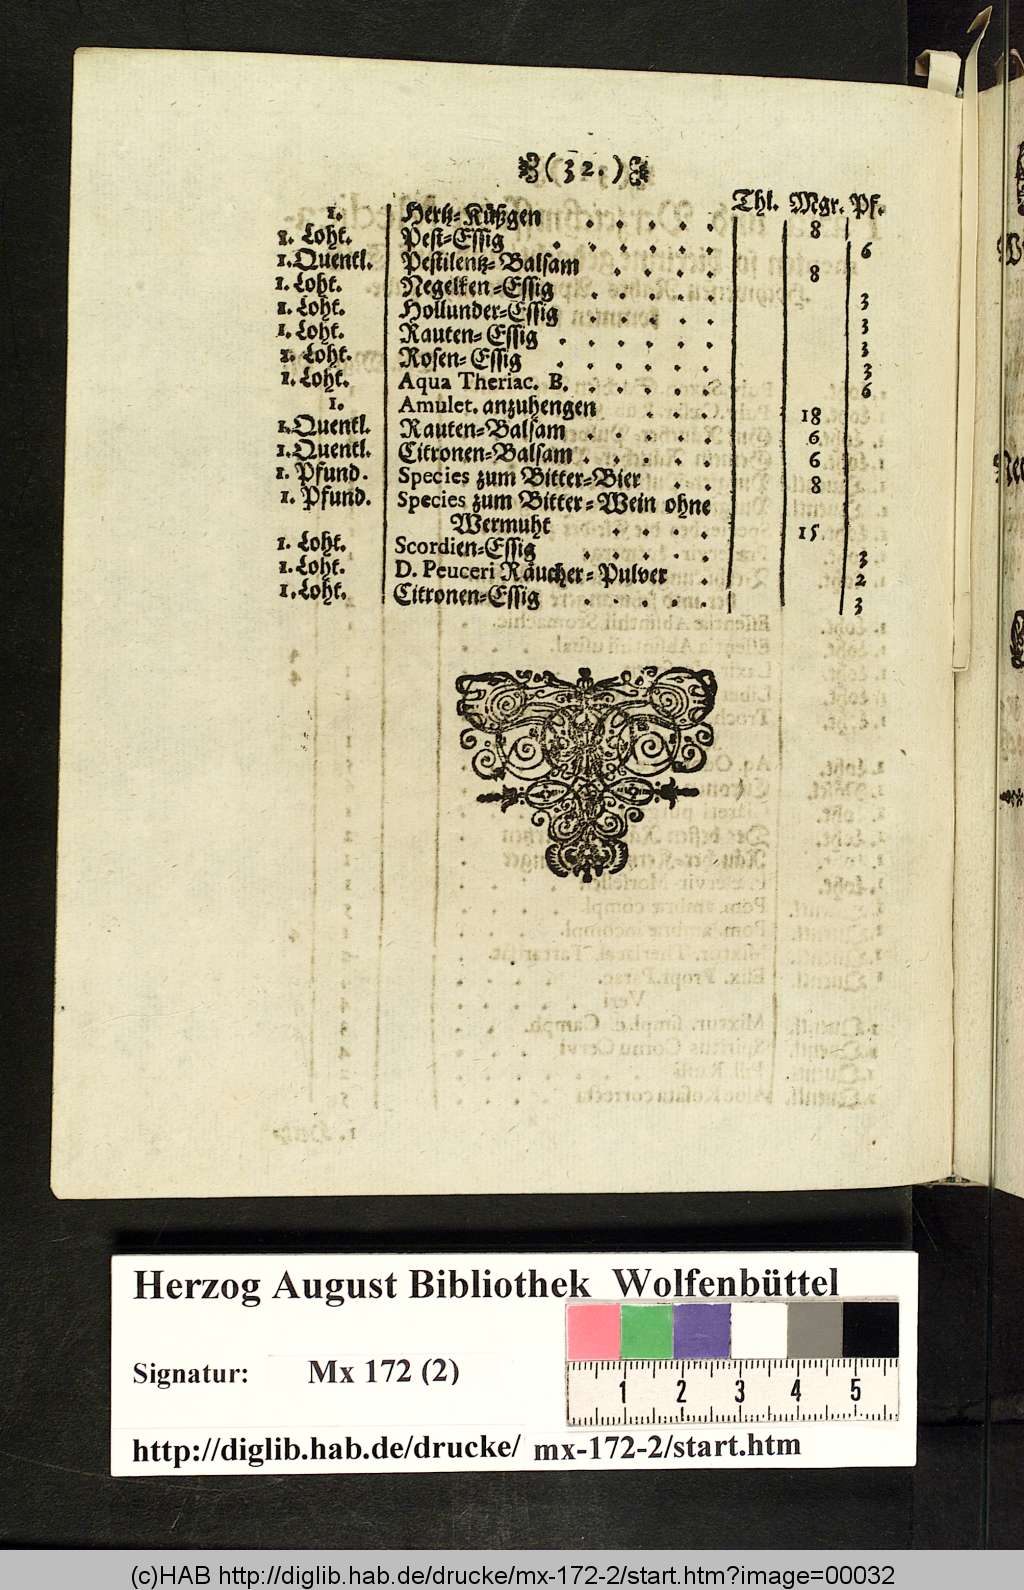 ( 32. )
Thl. Mgr. Pf.
1. Hertz-Küßgen . . . . . 8
1. Loht. Pest-Essig . . . . . 6
1. Quentl. Pestilentz-Balsam . . . . 8
1. Loht. Negelken-Essig . . . . . 3
1. Loht. Hollunder-Essig . . . . . 3
1. Loht. Rauten-Essig . . . . . . 3
1. Loht. Rosen-Essig . . . . . . 3
1. Loht. Aqua Theriac. B. . . . . . 6
1. Amulet. anzuhengen . . . 18
1. Quentl. Rauten-Balsam . . . . . 6
1. Quentl. Citronen-Balsam . . . . . 6
1. Pfund. Species zum Bitter-Bier . . 8
1. Pfund. Species zum Bitter-Wein ohne
Wermuht . . . . 15
1. Loht. Scordien-Essig . . . . . 3
1. Loht. D. Peuceri Räucher-Pulver . 2
1. Loht. Citronen-Essig . . . . 3
Herzog August Bibliothek Wolfenbüttel
Signatur: Mx 172 (2)
1 2 3 4 5
http://diglib.hab.de/drucke/ mx-172-2/start.htm
(c)HAB http://diglib.hab.de/drucke/mx-172-2/start.htm?image=00032